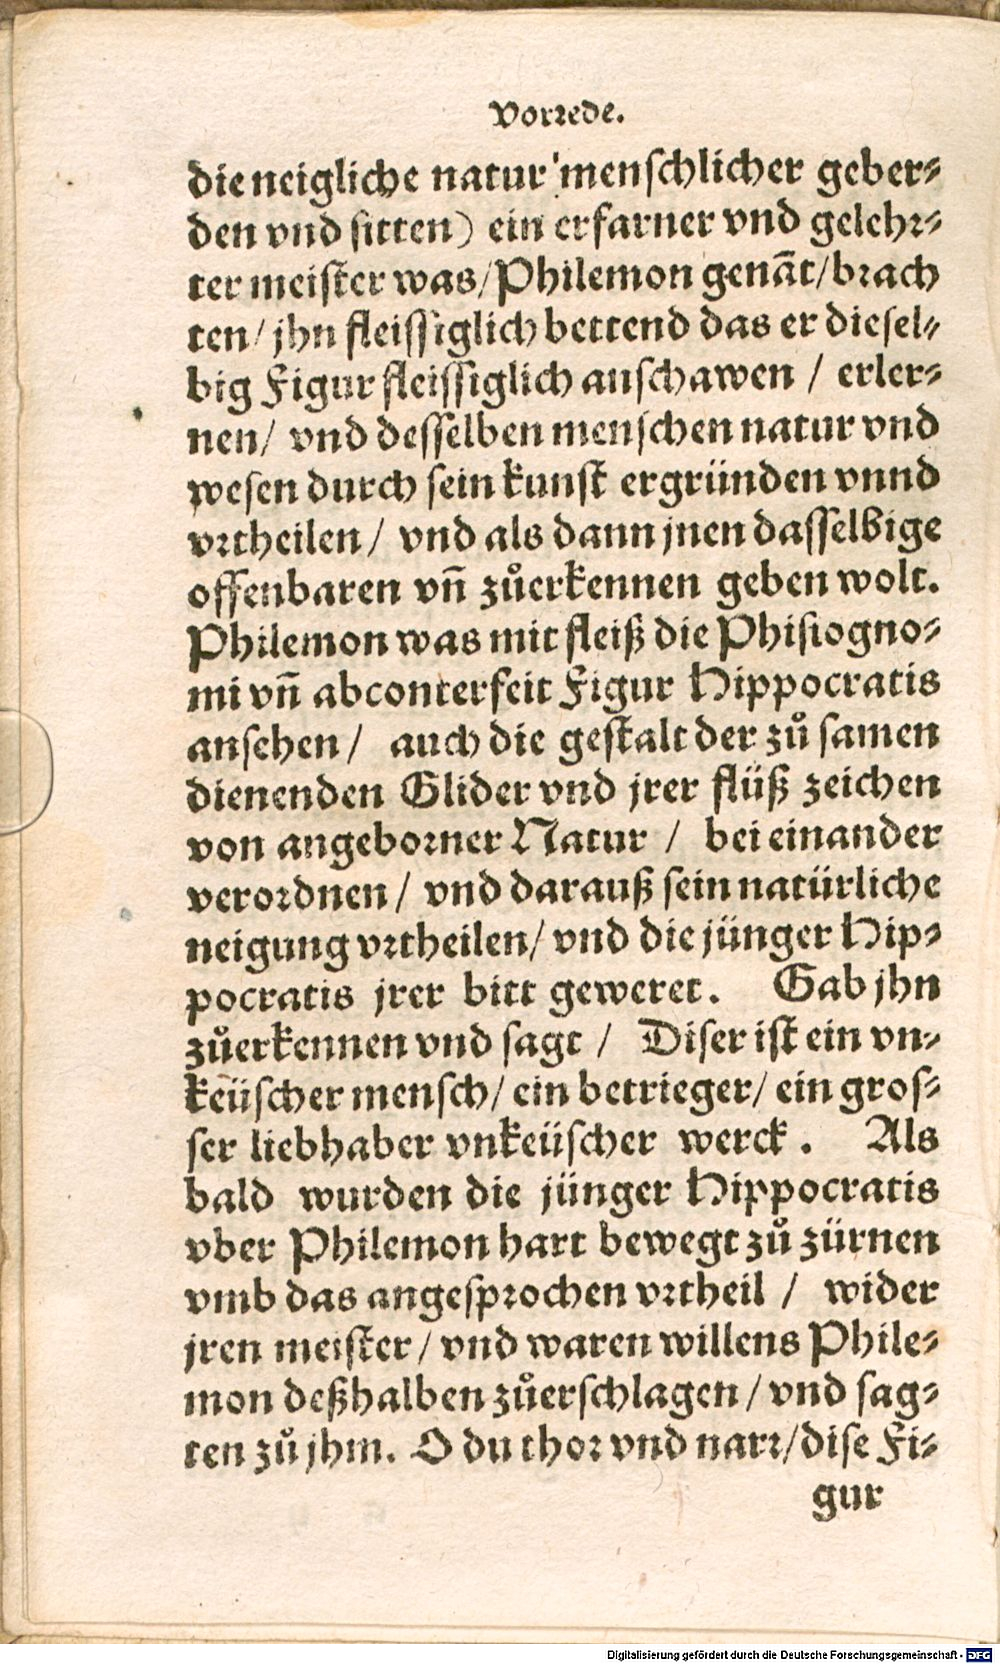 Vorrede.
die neigliche natur menschlicher geber⸗
den vnd sitten) ein erfarner vnd gelehr⸗
ter meister was/Philemon genãt/brach
ten/ jhn fleissiglich bettend das er diesel⸗
big Figur fleissiglich anschawen / erler⸗
nen/ vnd desselben menschen natur vnd
wesen durch sein kunst ergründen vnnd
vrtheilen / vnd als dann jnen dasselbige
offenbaren vñ zůerkennen geben wolt.
Philemon was mit fleiß die Phisiogno⸗
mi vñ abconterfeit Figur Hippocratis
ansehen / auch die gestalt der zů samen
dienenden Glider vnd jrer flüß zeichen
von angeborner Natur / bei einander
verordnen / vnd darauß sein natürliche
neigung vrtheilen/ vnd die jünger Hip⸗
pocratis jrer bitt geweret. Gab jhn
zůerkennen vnd sagt / Diser ist ein vn⸗
keüscher mensch/ ein betrieger/ ein gros⸗
ser liebhaber vnkeüscher werck . Als
bald wurden die jünger Hippocratis
vber Philemon hart bewegt zů zürnen
vmb das angesprochen vrtheil / wider
jren meister / vnd waren willens Phile⸗
mon deßhalben zůerschlagen / vnd sag⸗
ten zů jhm. O du thor vnd narr/dise Fi⸗
gur
Digitalisierung gefördert durch die Deutsche Forschungsgemeinschaft - DFG